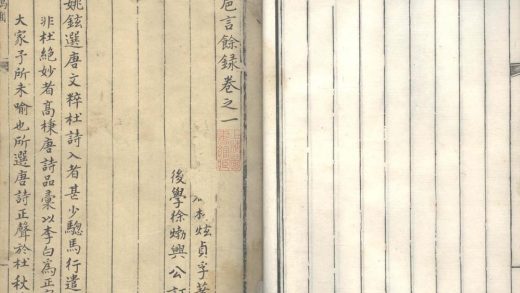 巵言餘錄卷之一
炫貞孚著
後學徐𤊹興公訂
姚鉉選唐文粹杜詩入者甚少驄馬行遺
非杜絶妙者高棅唐詩品彙以李白爲正
大家予所未喻也所選唐詩正聲於杜秋